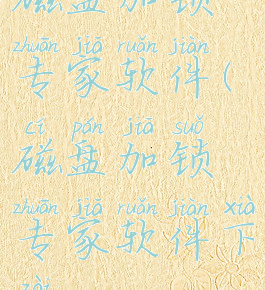 磁盘加锁
zhuān jiā ruǎn jiàn
专家软件(
cí pán jiā suǒ
磁盘加锁
zhuān jiā ruǎn jiàn xià
专家软件下
zài